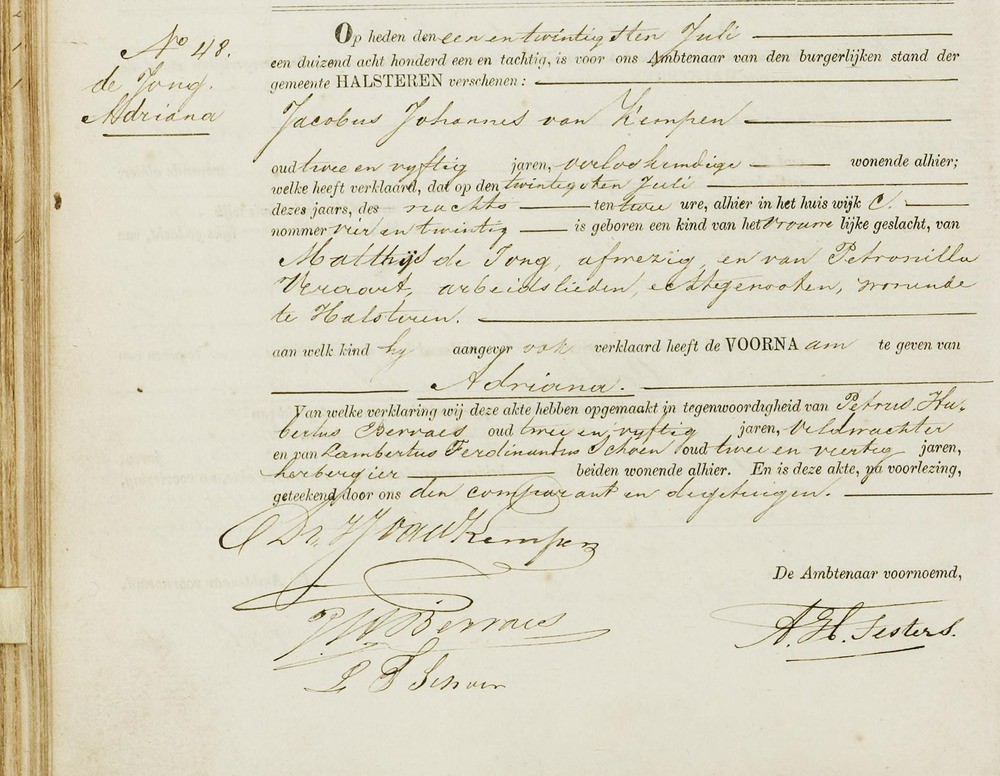 No 48.
de Jong.
Adriana
Op heden den een en twintigsten Juli
een duizend acht honderd een en tachtig, is voor ons Ambtenaar van den burgerlijken stand der
gemeente HALSTEREN verschenen:
Jacobus Johannes van Kempen
oud twee en vyftig jaren, verloskundige wonende alhier;
welke heeft verklaard, dat op den twintigsten Juli
dezes jaars, des nachts ten twee ure, alhier in het huis wijk C.
nommer vier en twintig is geboren een kind van het vrouwe lijke geslacht, van
Matthijs de Jong, afwezig, en van Petronilla
Veraart, arbeidslieden, echtegenooten, wonende
te Halsteren.
aan welk kind hy aangever ook verklaard heeft de VOORNA am te geven van
Adriana.
Van welke verklaring wij deze akte hebben opgemaakt in tegenwoordigheid van Petrus Hu-
bertus Bervaes oud twee en vyftig jaren, Veldwachter
en van Lambertus Ferdinandus Schoen oud twee en veertig jaren,
herbergier beiden wonende alhier. En is deze akte, na voorlezing,
geteekend door ons den comparant en de getuigen.
van Kempen
De Ambtenaar voornoemd,
Bervaes
A. H. Sesters.
L F Schoen